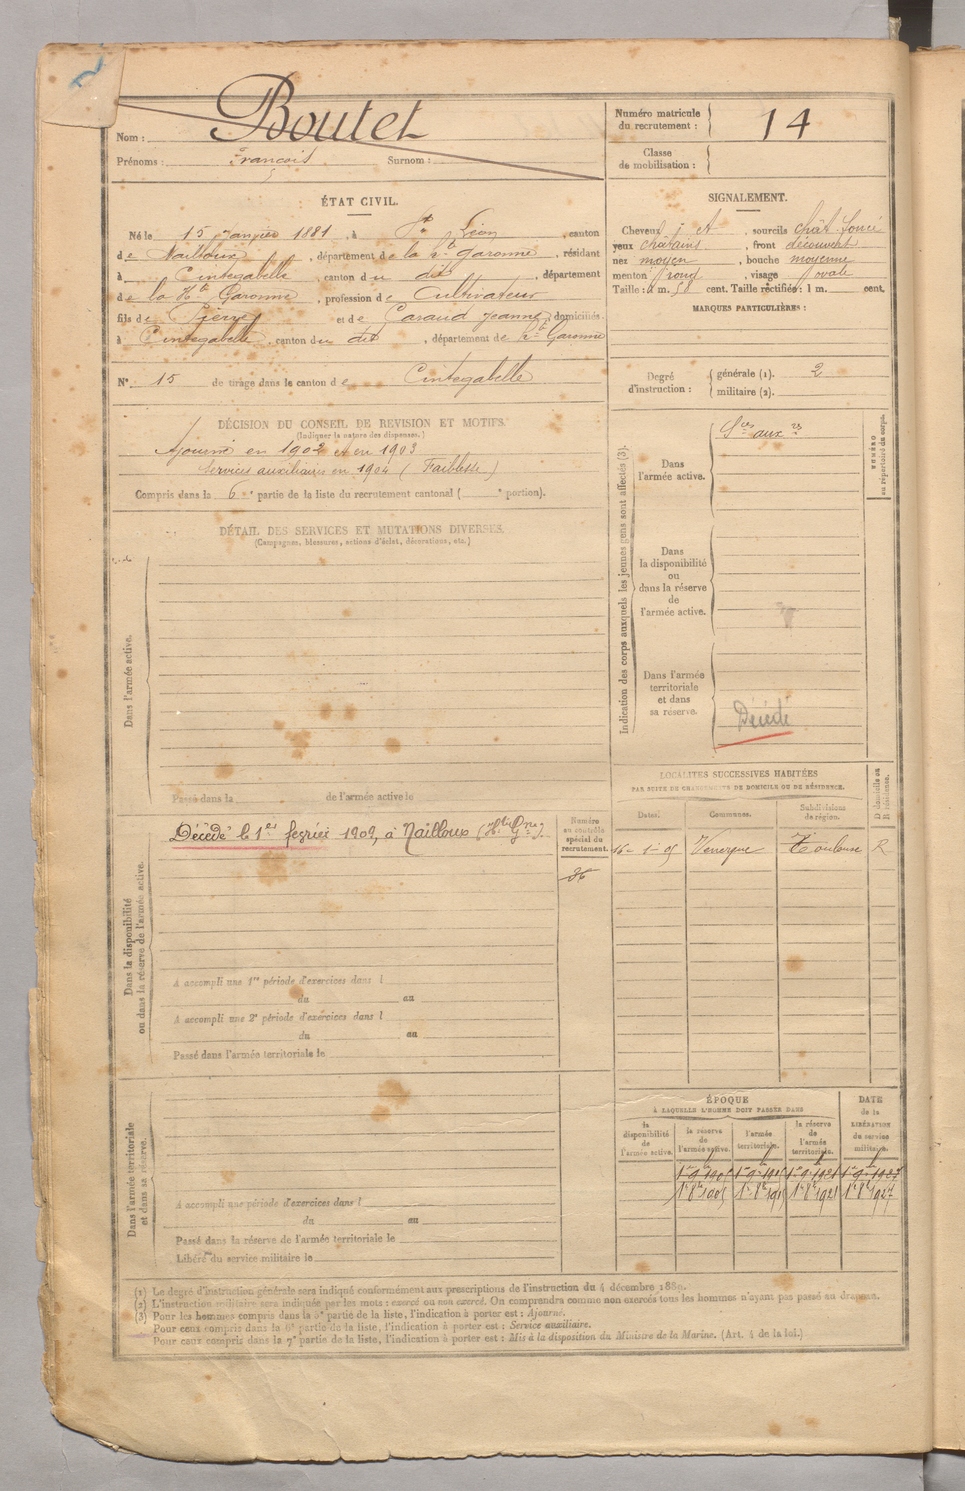 Nom : Boutet
Prénoms : François Surnom :
Numéro matricule du recrutement : 14
Classe de mobilisation :
ÉTAT CIVIL.
Né le 15 Janvier 1881, à St Léon, canton
de Nailloux, département de la Hte Garonne, résidant
à Cintegabelle, canton du dit, département
de la Hte Garonne, profession de Cultivateur
fils de Pierre et de Garaud Jeanne, domiciliés
à Cintegabelle, canton du dit, département de Hte Garonne
N° 15 de tirage dans le canton de Cintegabelle
SIGNALEMENT.
Cheveux et , sourcils chât. foncé
yeux châtains , front découvert
nez moyen , bouche moyenne
menton rond , visage ovale
Taille : 1 m. 58 cent. Taille rectifiée : 1 m. cent.
MARQUES PARTICULIÈRES :
Degré d'instruction : générale (1). 2
militaire (2).
DÉCISION DU CONSEIL DE REVISION ET MOTIFS.
(Indiquer la nature des dispenses.)
Ajourné en 1902 et en 1903
Services auxiliaires en 1904 (Faiblesse)
Compris dans la 6e partie de la liste du recrutement cantonal ( e portion).
DÉTAIL DES SERVICES ET MUTATIONS DIVERSES.
(Campagnes, blessures, actions d'éclat, décorations, etc.)
Dans l'armée active.
Passé dans la de l'armée active le
Indication des corps auxquels les jeunes gens sont affectés (3).
Dans l'armée active.
Sces auxres
NUMÉRO au répertoire du corps.
Dans la disponibilité ou dans la réserve de l'armée active.
Dans l'armée territoriale et dans sa réserve.
Décédé
Dans la disponibilité ou dans la réserve de l'armée active.
Décédé le 1er février 1909, à Nailloux (Hte Gne).
Numéro au contrôle spécial du recrutement.
36
A accompli une 1re période d'exercices dans l
du au
A accompli une 2e période d'exercices dans l
du au
Passé dans l'armée territoriale le
LOCALITÉS SUCCESSIVES HABITÉES
PAR SUITE DE CHANGEMENTS DE DOMICILE OU DE RÉSIDENCE.
Dates. Communes. Subdivisions de région. D domicile ou R résidence.
16-1-05 Venerque Toulouse R
Dans l'armée territoriale et dans sa réserve.
A accompli une période d'exercices dans l
du au
Passé dans la réserve de l'armée territoriale le
Libéré du service militaire le
ÉPOQUE
À LAQUELLE L'HOMME DOIT PASSER DANS
DATE de la LIBÉRATION du service militaire.
la disponibilité de l'armée active. la réserve de l'armée active. l'armée territoriale. la réserve de l'armée territoriale.
(1) Le degré d'instruction générale sera indiqué conformément aux prescriptions de l'instruction du 4 décembre 1889.
(2) L'instruction militaire sera indiquée par les mots : exercé ou non exercé. On comprendra comme non exercés tous les hommes n'ayant pas passé au drapeau.
(3) Pour les hommes compris dans la 5e partie de la liste, l'indication à porter est : Ajourné.
Pour ceux compris dans la 6e partie de la liste, l'indication à porter est : Service auxiliaire.
Pour ceux compris dans la 7e partie de la liste, l'indication à porter est : Mis à la disposition du Ministre de la Marine. (Art. 4 de la loi.)